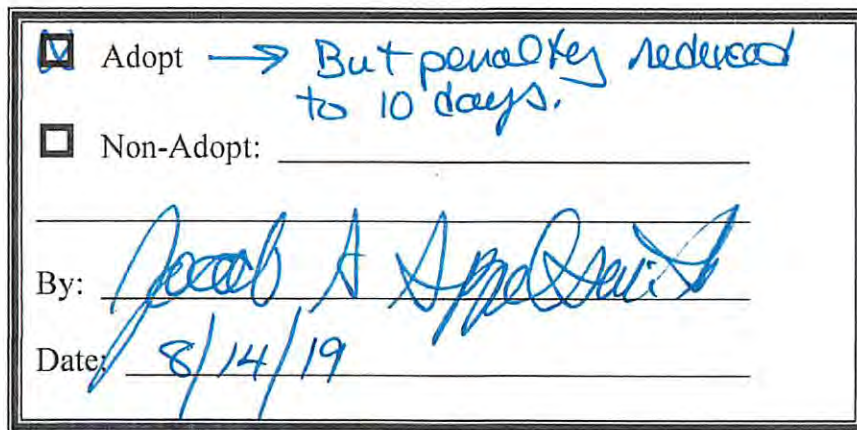 Adopt → But penalty reduced
to 10 days.
Non-Adopt:
By: Jacob A Appelsmith
Date: 8/14/19